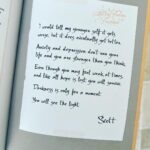 I would tell my younger self it gets
worse, but it does eventually get better.
Anxiety and depression don't own your
life and you are stronger than you think.
Even though you may feel weak at times,
and like all hope is lost you will survive.
Darkness is only for a moment.
You will see the light.
Scott